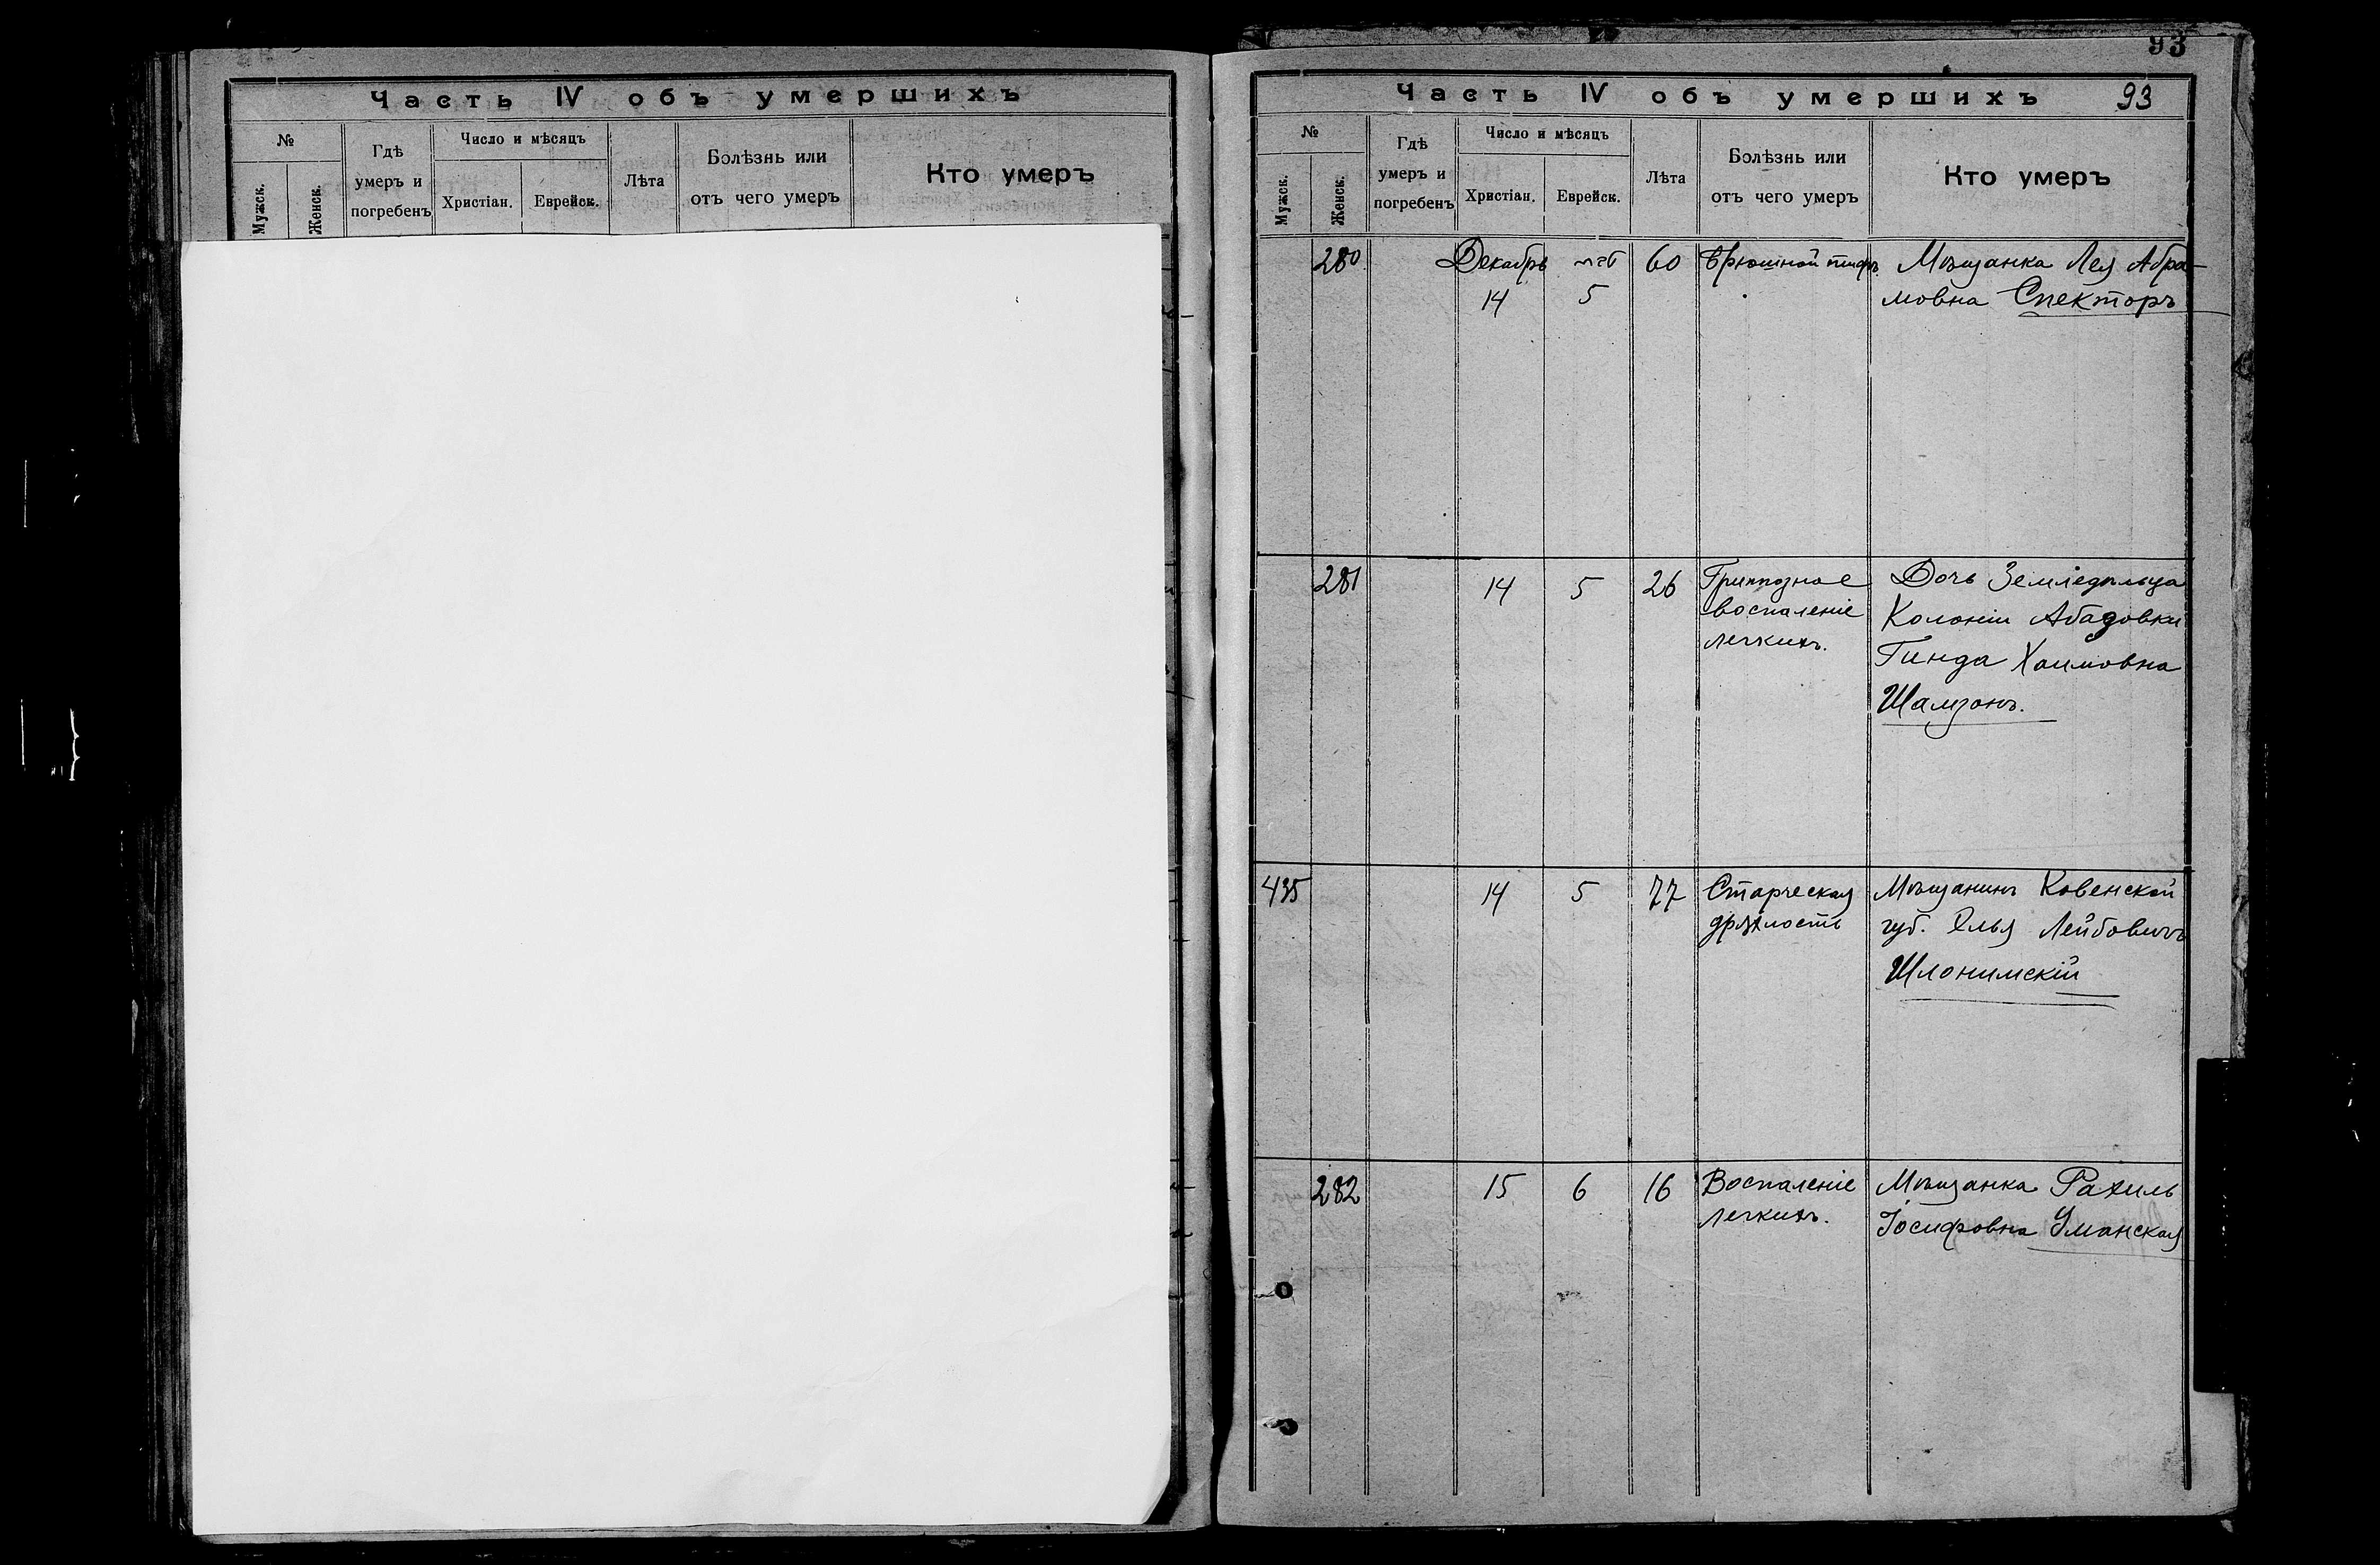 Часть IV объ умершихъ
№
Мужск.
Женск.
Гдѣ
умеръ и
погребенъ
Число и мѣсяцъ
Христіан.
Еврейск.
Лѣта
Болѣзнь или
отъ чего умеръ
Кто умеръ
93
Часть IV объ умершихъ 93
№
Мужск.
Женск.
Гдѣ
умеръ и
погребенъ
Число и мѣсяцъ
Христіан.
Еврейск.
Лѣта
Болѣзнь или
отъ чего умеръ
Кто умеръ
280 Декабрь 60 Брюшной тифъ. Мѣщанка Лея Абра-
14 5 мовна Спекторъ
281 14 5 26 Гриппозное Дочь Земледѣльца
воспаленіе Колоніи Абазовки
легкихъ. Гинда Хаимовна
Шамзонъ.
435 14 5 77 Старческая Мѣщанинъ Ковенской
дряхлость губ. Элья Лейбовичъ
Шлонимскій
282 15 6 16 Воспаленіе Мѣщанка Рахиль
легкихъ. Іосифовна Уманская